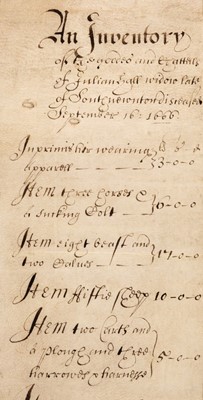 An Inventory
of ye goodes and Chattells
of Julian Hall widow late
of South newnton disceased
September 16: 1666
Inprimis her wearing £ s d
apparell — — — 3-0-0
Item three horses &
a sucking Colt — 16-0-0
Item eight beast and
two Calves — — — 17-0-0
Item ffiftie sheep 10-0-0
Item two carts and
a plough and three
harrowes & harnesse 5-0-0